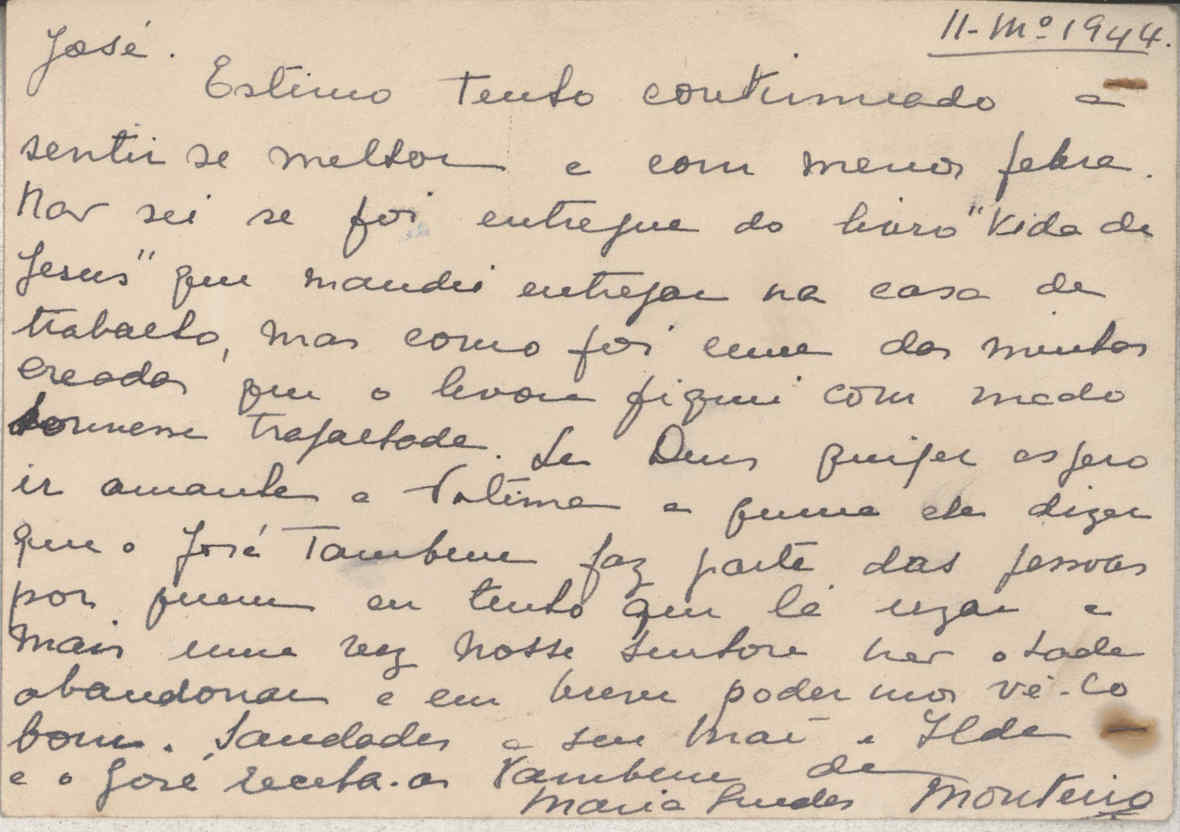 11-Mº 1944.
José.
Estimo tenha continuado a
sentir se melhor e com menos febre.
Nao sei se foi entregue do livro "Vida de
Jesus" que mandei entregar na casa de
trabalho, mas como foi uma das minhas
creadas que o levou fiquei com medo
houvesse trapalhada. Se Deus quiser espero
ir amanha a Fatima e quero lhe dizer
que o José Tambem faz parte das pessoas
por quem eu tenho que lá rezar e
mais uma vez Nossa Senhora nao o hade
abandonar e em breve poder mos vê-lo
bom. Saudades a sua Mai e Ilda
e o José receba-as Tambem de
Maria Guedes Monteiro